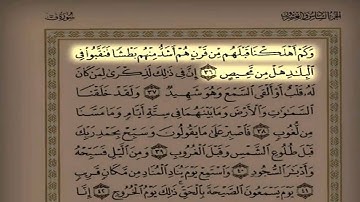 الجزء السادس والعشرون
سورة ق
وَكَمْ أَهْلَكْنَا قَبْلَهُم مِّن قَرْنٍ هُمْ أَشَدُّ مِنْهُم بَطْشًا فَنَقَّبُوا۟ فِى
ٱلْبِلَٰدِ هَلْ مِن مَّحِيصٍ ٣٦ إِنَّ فِى ذَٰلِكَ لَذِكْرَىٰ لِمَن كَانَ
لَهُۥ قَلْبٌ أَوْ أَلْقَى ٱلسَّمْعَ وَهُوَ شَهِيدٌ ٣٧ وَلَقَدْ خَلَقْنَا
ٱلسَّمَٰوَٰتِ وَٱلْأَرْضَ وَمَا بَيْنَهُمَا فِى سِتَّةِ أَيَّامٍ وَمَا مَسَّنَا
مِن لُّغُوبٍ ٣٨ فَٱصْبِرْ عَلَىٰ مَا يَقُولُونَ وَسَبِّحْ بِحَمْدِ رَبِّكَ
قَبْلَ طُلُوعِ ٱلشَّمْسِ وَقَبْلَ ٱلْغُرُوبِ ٣٩ وَمِنَ ٱلَّيْلِ فَسَبِّحْهُ
وَأَدْبَٰرَ ٱلسُّجُودِ ٤٠ وَٱسْتَمِعْ يَوْمَ يُنَادِ ٱلْمُنَادِ مِن مَّكَانٍ قَرِيبٍ
٤١ يَوْمَ يَسْمَعُونَ ٱلصَّيْحَةَ بِٱلْحَقِّ ذَٰلِكَ يَوْمُ ٱلْخُرُوجِ ٤٢ إِنَّا